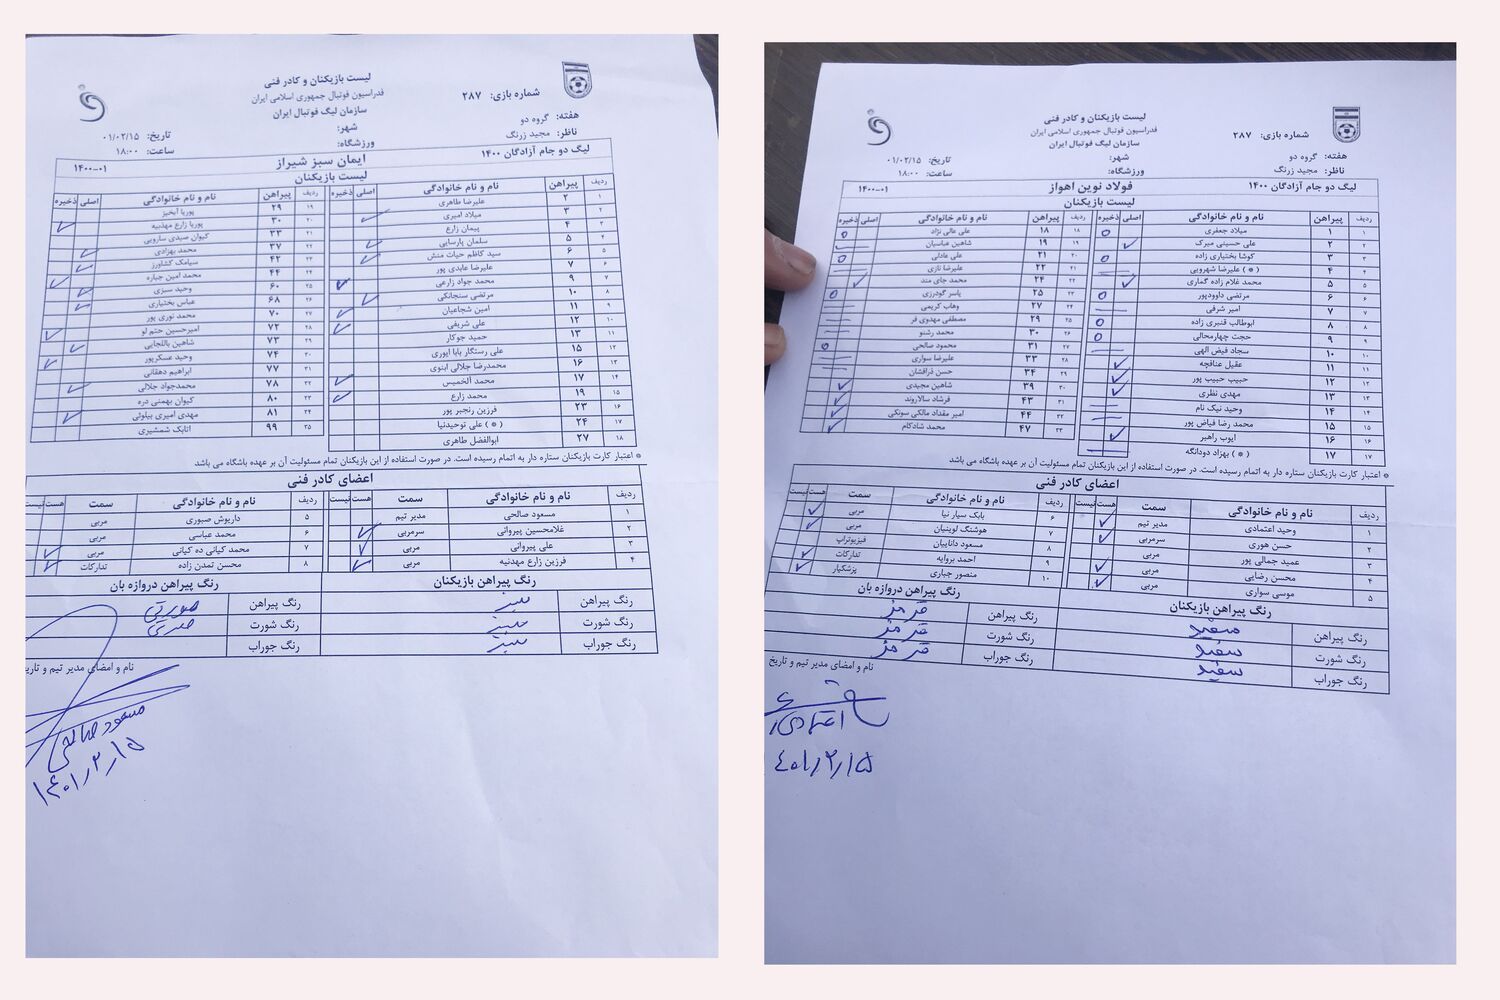 لیست بازیکنان و کادر فنی
فدراسیون فوتبال جمهوری اسلامی ایران
سازمان لیگ فوتبال ایران
شماره بازی: ۲۸۷
هفته: گروه دو
شهر:
تاریخ: ۰۱/۰۲/۱۵
ناظر: مجید زرنگ
ورزشگاه:
ساعت: ۱۸:۰۰
لیگ دو جام آزادگان ۱۴۰۰
ایمان سبز شیراز
۱۴۰۰-۰۱
لیست بازیکنان
ردیف پیراهن نام و نام خانوادگی اصلی ذخیره
۱ ۲ علیرضا طاهری
۲ ۳ میلاد امیری
۳ ۴ پیمان زارع
۴ ۵ سلمان پارسایی
۵ ۶ سید کاظم حیات منش
۶ ۷ علیرضا عابدی پور
۷ ۹ محمد جواد زارعی
۸ ۱۰ مرتضی سنجانکی
۹ ۱۱ امین شجاعیان
۱۰ ۱۲ علی شریفی
۱۱ ۱۳ حمید جوکار
۱۲ ۱۵ علی رستگار بابا اپوری
۱۳ ۱۶ محمدرضا جلالی ابنوی
۱۴ ۱۷ محمد آلخمیس
۱۵ ۱۹ محمد زارع
۱۶ ۲۳ فرزین رنجبر پور
۱۷ ۲۴ ( * ) علی توحیدنیا
۱۸ ۲۷ ابوالفضل طاهری
ردیف پیراهن نام و نام خانوادگی اصلی ذخیره
۱۹ ۲۹ پوریا آبخیز
۲۰ ۳۰ پوریا زارع مهدنیه
۲۱ ۳۳ کیوان صیدی سارویی
۲۲ ۳۷ محمد بهزادی
۲۳ ۴۲ سیامک کشاورز
۲۴ ۴۴ محمد امین جباره
۲۵ ۶۰ وحید سبزی
۲۶ ۶۸ عباس بختیاری
۲۷ ۷۰ محمد نوری پور
۲۸ ۷۲ امیرحسین ختم لو
۲۹ ۷۳ شاهین باللجایی
۳۰ ۷۴ وحید عسکرپور
۳۱ ۷۷ ابراهیم دهقانی
۳۲ ۷۸ محمدجواد جلالی
۳۳ ۸۰ کیوان بهمنی دره
۳۴ ۸۱ مهدی امیری بیلوئی
۳۵ ۹۹ اتابک شمشیری
* اعتبار کارت بازیکنان ستاره دار به اتمام رسیده است. در صورت استفاده از این بازیکنان تمام مسئولیت آن بر عهده باشگاه می باشد
اعضای کادر فنی
ردیف نام و نام خانوادگی سمت هست نیست
۱ مسعود صالحی مدیر تیم
۲ غلامحسین پیروانی سرمربی
۳ علی پیروانی مربی
۴ فرزین زارع مهدنیه مربی
ردیف نام و نام خانوادگی سمت هست نیست
۵ داریوش صبوری مربی
۶ محمد عباسی مربی
۷ محمد کیانی ده کیانی مربی
۸ محسن تمدن زاده تدارکات
رنگ پیراهن بازیکنان
رنگ پیراهن سبز
رنگ شورت سبز
رنگ جوراب سبز
رنگ پیراهن دروازه بان
رنگ پیراهن صورتی
رنگ شورت
رنگ جوراب
نام و امضای مدیر تیم و تاریخ
مسعود صالحی
۱۴۰۱/۲/۱۵
لیست بازیکنان و کادر فنی
فدراسیون فوتبال جمهوری اسلامی ایران
سازمان لیگ فوتبال ایران
شماره بازی: ۲۸۷
هفته: گروه دو
شهر:
تاریخ: ۰۱/۰۲/۱۵
ناظر: مجید زرنگ
ورزشگاه:
ساعت: ۱۸:۰۰
لیگ دو جام آزادگان ۱۴۰۰
فولاد نوین اهواز
۱۴۰۰-۰۱
لیست بازیکنان
ردیف پیراهن نام و نام خانوادگی اصلی ذخیره
۱ ۱ میلاد جعفری
۲ ۲ علی حسینی میرک
۳ ۳ کوشا بختیاری زاده
۴ ۴ ( * ) علیرضا شهرویی
۵ ۵ محمد غلام زاده گماری
۶ ۶ مرتضی داوودپور
۷ ۷ امیر شرفی
۸ ۸ ابوطالب قنبری زاده
۹ ۹ حجت چهارمحالی
۱۰ ۱۰ سجاد فیض الهی
۱۱ ۱۱ عقیل عنافچه
۱۲ ۱۲ حبیب حبیب پور
۱۳ ۱۳ مهدی نظری
۱۴ ۱۴ وحید نیک نام
۱۵ ۱۵ محمد رضا فیاض پور
۱۶ ۱۶ ایوب راهبر
۱۷ ۱۷ ( * ) بهزاد دودانگه
ردیف پیراهن نام و نام خانوادگی اصلی ذخیره
۱۸ ۱۸ علی عالی نژاد
۱۹ ۱۹ شاهین عباسیان
۲۰ ۲۱ علی عادلی
۲۱ ۲۲ علیرضا نازی
۲۲ ۲۴ محمد جای مند
۲۳ ۲۵ یاسر گودرزی
۲۴ ۲۷ وهاب کریمی
۲۵ ۲۹ مصطفی مهدوی فر
۲۶ ۳۰ محمد رشنو
۲۷ ۳۱ محمود صالحی
۲۸ ۳۳ علیرضا سواری
۲۹ ۳۴ حسن فرافشان
۳۰ ۳۹ شاهین مجیدی
۳۱ ۴۳ فرشاد سالاروند
۳۲ ۴۴ امیر مقداد مالکی سونکی
۳۳ ۴۷ محمد شادکام
* اعتبار کارت بازیکنان ستاره دار به اتمام رسیده است. در صورت استفاده از این بازیکنان تمام مسئولیت آن بر عهده باشگاه می باشد
اعضای کادر فنی
ردیف نام و نام خانوادگی سمت هست نیست
۱ وحید اعتمادی مدیر تیم
۲ حسن هوری سرمربی
۳ عمید جمالی پور مربی
۴ محسن رضایی مربی
۵ موسی سواری مربی
ردیف نام و نام خانوادگی سمت هست نیست
۶ بابک سیار نیا مربی
۷ هوشنگ لوینیان مربی
۸ مسعود داناییان فیزیوتراپ
۹ احمد بروایه تدارکات
۱۰ منصور جباری پزشکیار
رنگ پیراهن بازیکنان
رنگ پیراهن سفید
رنگ شورت سفید
رنگ جوراب سفید
رنگ پیراهن دروازه بان
رنگ پیراهن قرمز
رنگ شورت قرمز
رنگ جوراب قرمز
نام و امضای مدیر تیم و تاریخ
اعتمادی
۴۰۱/۲/۱۵